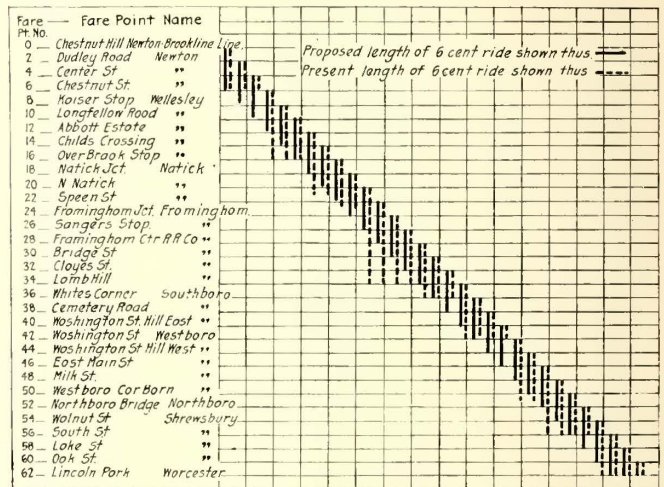 Fare — Fare Point Name
Pt. No.
0 — Chestnut Hill Newton-Brookline Line
2 — Dudley Road Newton
4 — Center St "
6 — Chestnut St. "
8 — Kaiser Stop Wellesley
10 — Longfellow Road "
12 — Abbott Estate "
14 — Childs Crossing "
16 — OverBrook Stop "
18 — Natick Jct. Natick
20 — N Natick "
22 — Speen St "
24 — Framingham Jct. Framingham
26 — Sangers Stop "
28 — Framingham Ctr R R Co "
30 — Bridge St "
32 — Cloyes St. "
34 — Lomb Hill "
36 — Whites Corner Southboro
38 — Cemetery Road "
40 — Washington St. Hill East "
42 — Washington St Westboro
44 — Washington St Hill West "
46 — East Main St "
48 — Milk St. "
50 — Westboro Car Barn "
52 — Northboro Bridge Northboro
54 — Walnut St Shrewsbury
56 — South St "
58 — Lake St "
60 — Oak St. "
62 — Lincoln Park Worcester
Proposed length of 6 cent ride shown thus
Present length of 6 cent ride shown thus